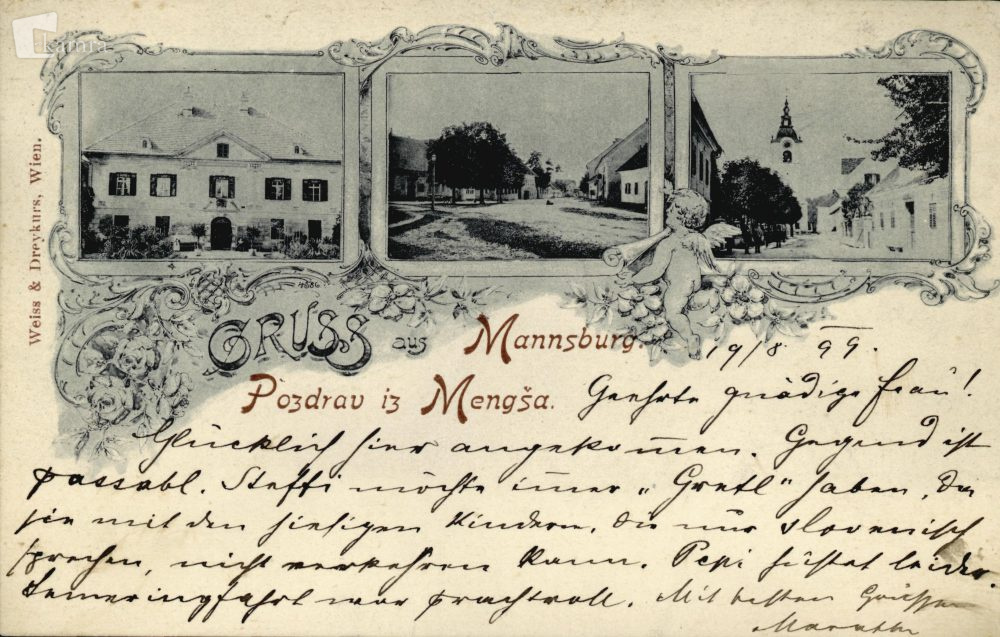 kamra
Weiss & Dreykurs, Wien.
4886
GRUSS aus Mannsburg.
Pozdrav iz Mengša.
19/8 99.
Geehrte gnädige Frau!
Glücklich hier angekom̅en. Gegend ist
passabl. Steffi möchte im̅er „Gretl" haben, da
sie mit den hiesigen Kindern, die nur slovenisch
sprechen, nicht verkehren kann. Pepi hustet leider.
Semeringfahrt war prachtvoll. Mit besten Grüssen